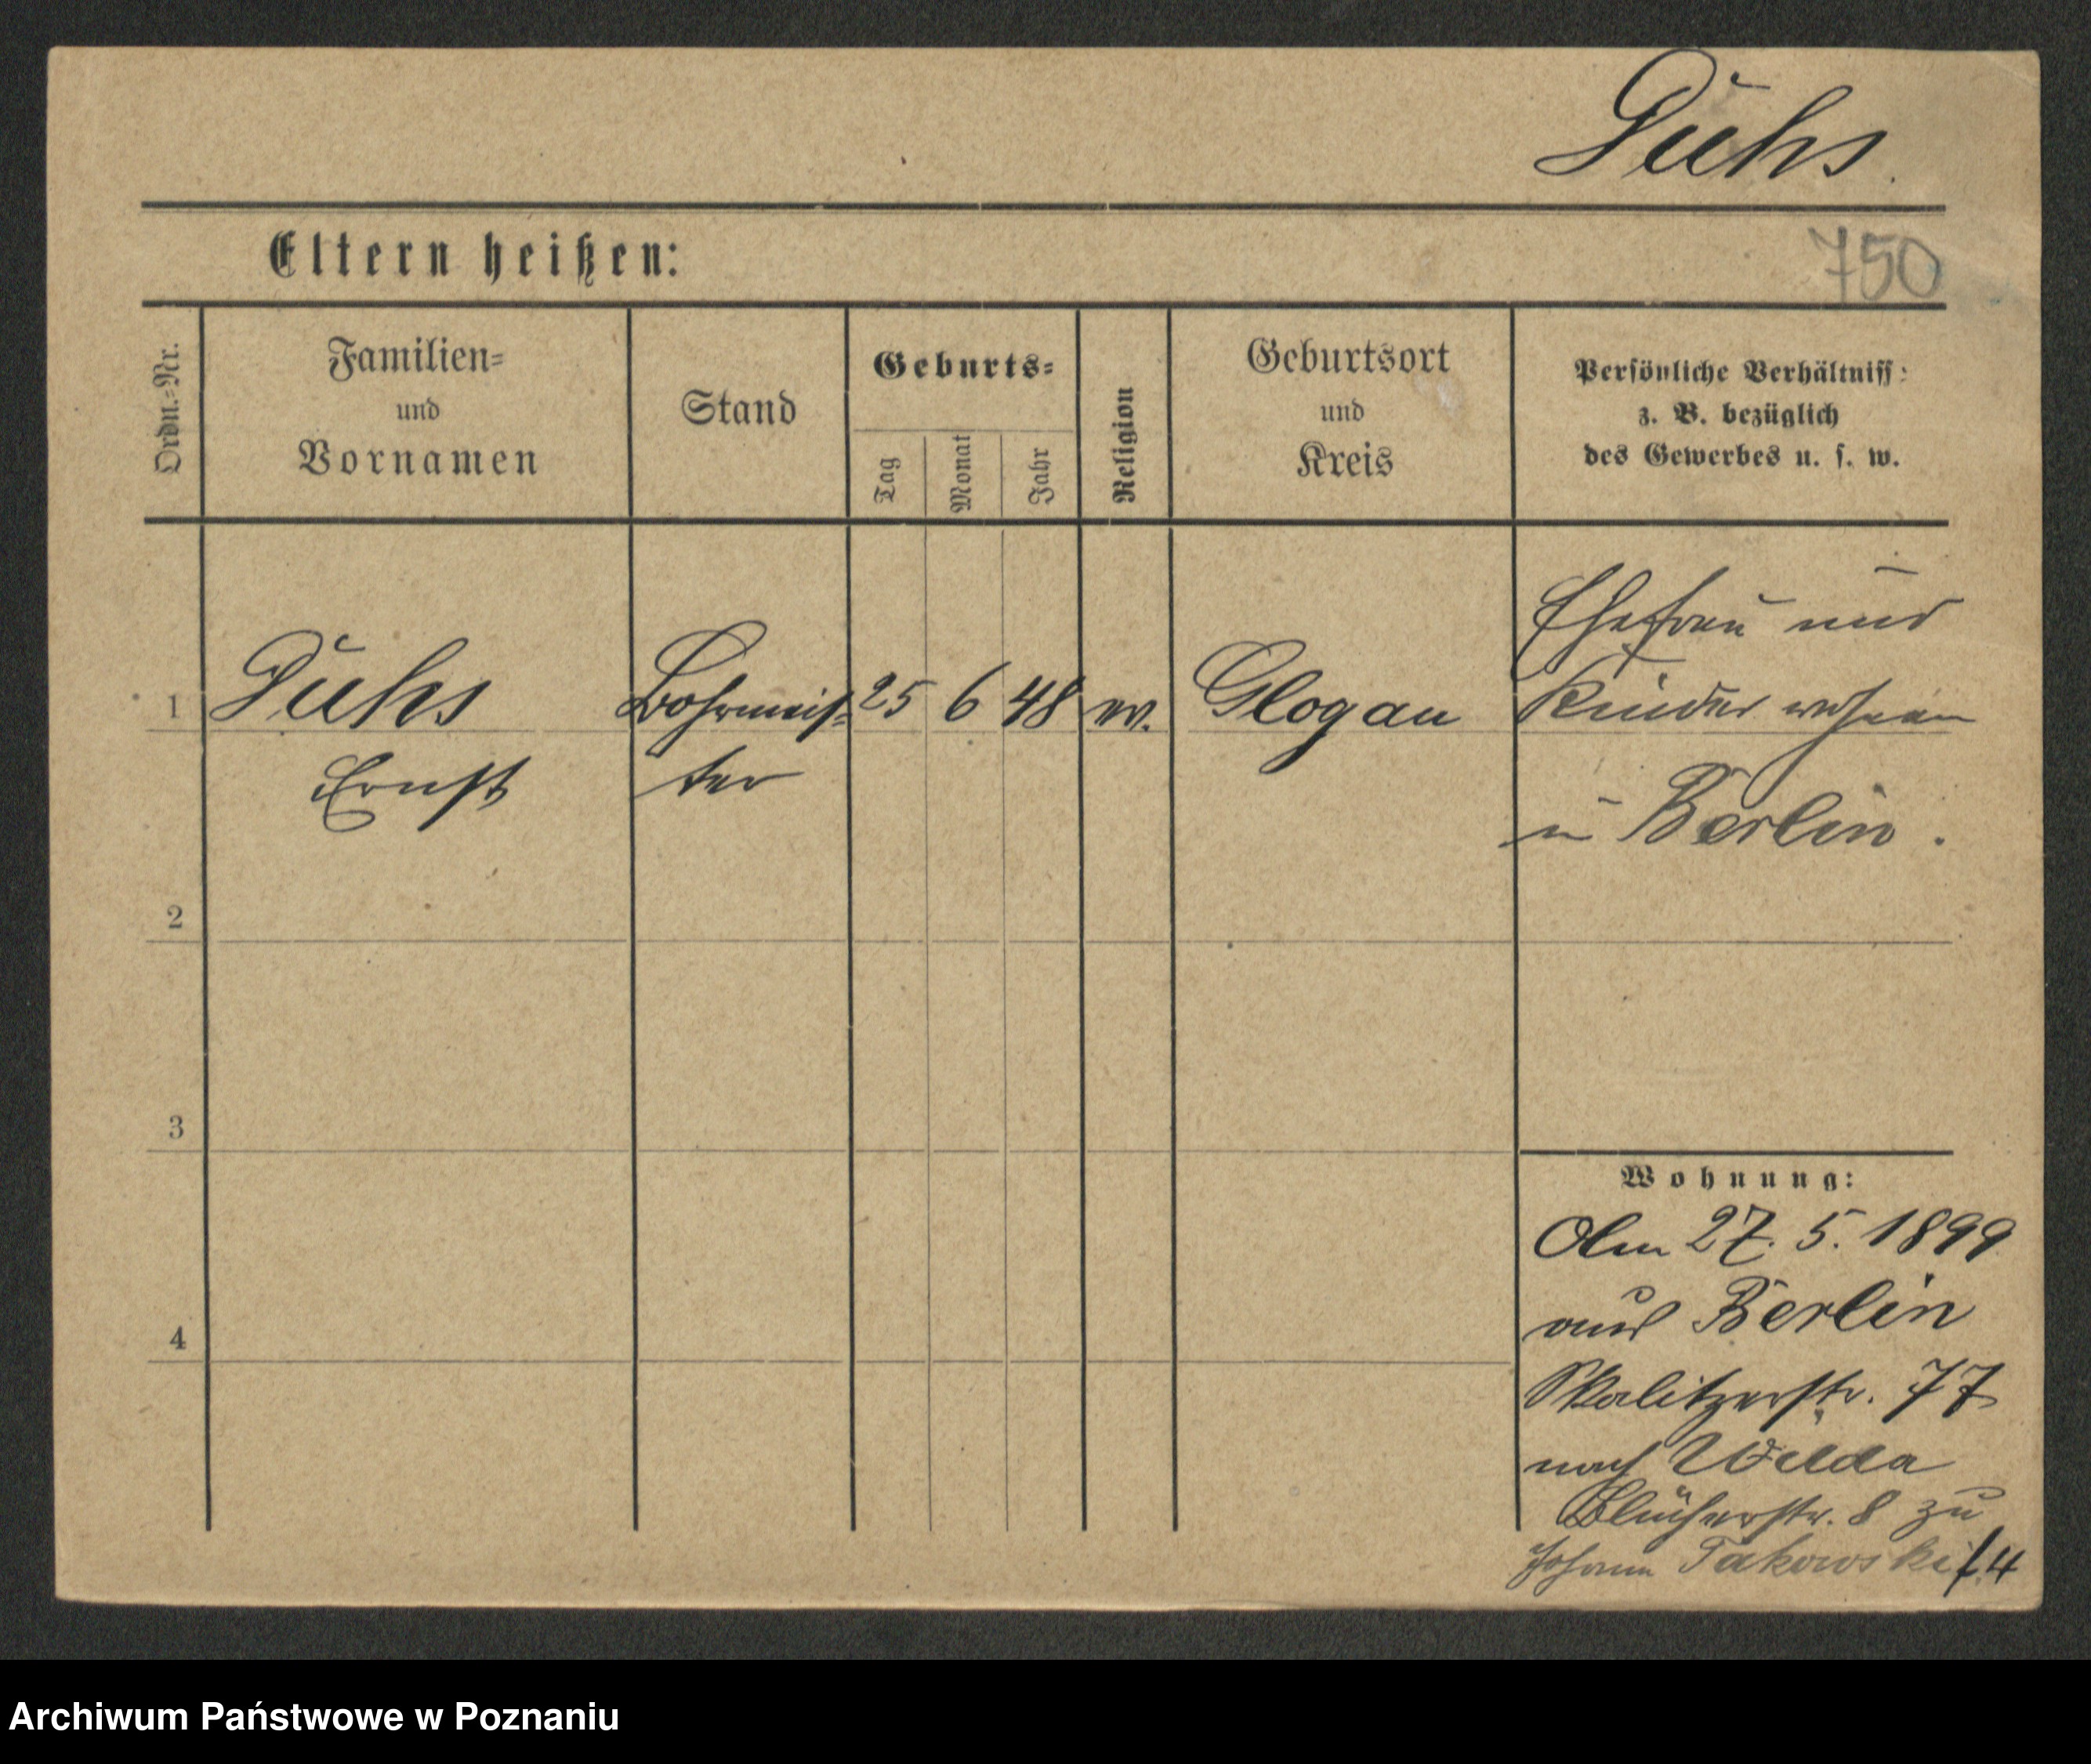 Duhs.
Eltern heißen:
750
Ordn.-Nr.
Familien-
und
Vornamen
Stand
Geburts-
Tag
Monat
Jahr
Religion
Geburtsort
und
Kreis
Persönliche Verhältniss:
z. B. bezüglich
des Gewerbes u. s. w.
1
Duhs
Ernst
Bohrmeis-
ter
25
6
48
ev.
Glogau
Ehefrau und
Kinder wohnen
in Berlin.
2
3
4
Wohnung:
Am 27. 5. 1899
aus Berlin
Skalitzerstr. 77
nach Wilda
Blücherstr. 8 zu
Johann
Archiwum Państwowe w Poznaniu